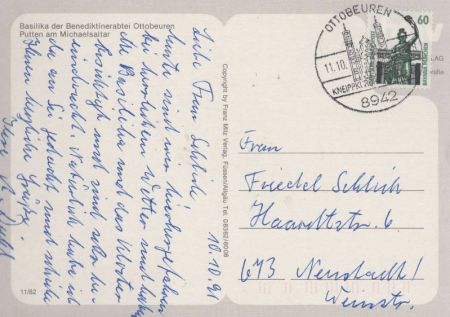 Basilika der Benediktinerabtei Ottobeuren
Putten am Michaelsaltar
10.10.91
Liebe Frau Schlich
heute sind wir hierhergefahren
bei herrlichem Wetter und haben
die Basilika und das Kloster
besichtigt und sind sehr be-
eindruckt. Natürlich habe ich
da an Sie gedacht und schicke
Ihnen herzliche Grüße.
Ihre
11/82
Copyright by Franz Milz Verlag, Füssen/Allgäu Tel. 08362/6008
OTTOBEUREN
11.10.
KNEIPPK
8942
60
Frau
Friedel Schlich
Haardtstr. 6
673 Neustadt/
Weinstr.